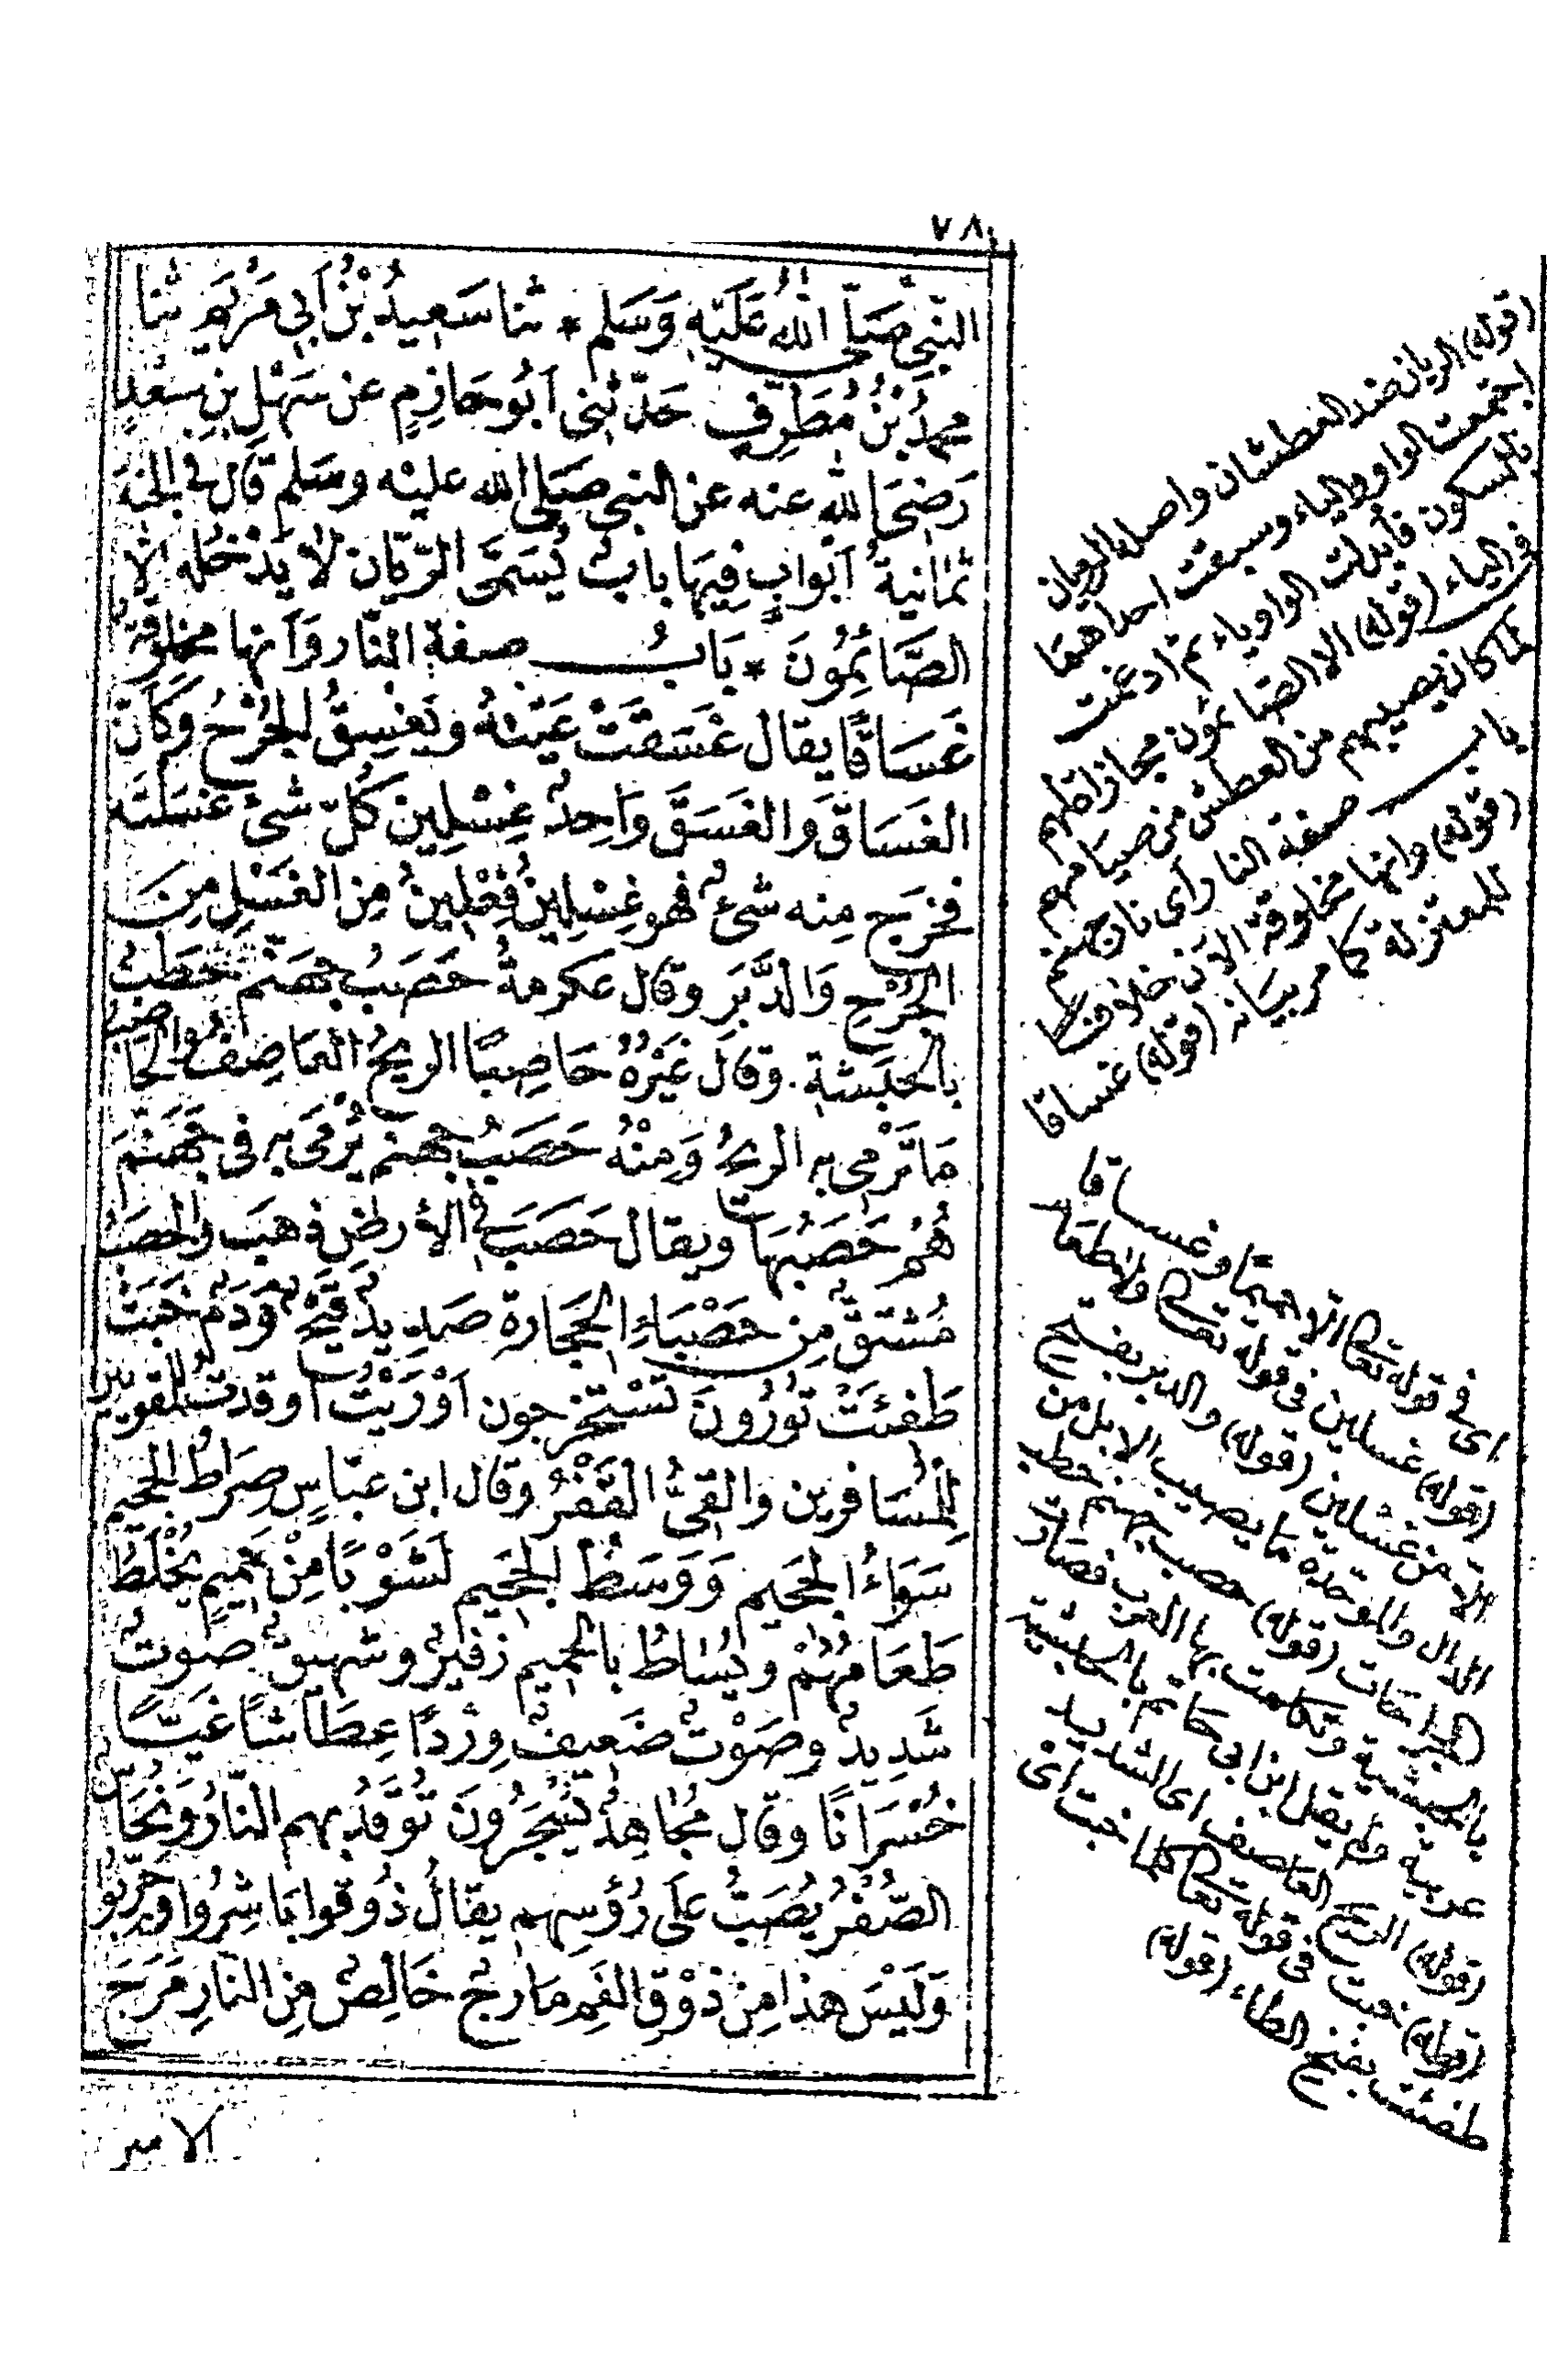 ٧٨
النَّبِيِّ صَلَّى اللهُ عَلَيْهِ وَسَلَم * ثنا سَعِيدُ بْنُ أَبِي مَرْيَمَ ثنا
محمدُ بْنُ مُطَرِّفٍ حَدّثنى أَبُو حَازِمٍ عن سَهْلِ بنِ سَعْدٍ
رَضِىَ الله عنه عن النبى صَلى الله عليْه وسَلم قال فى الجنة
ثمانيةُ أبْوابٍ فِيهَا بابٌ يُسَمَّى الرَّيّان لاَ يدْخُله إلاّ
الصَّائِمُونَ * بَابُ صِفة النّار وَأنها مخلوقةٌ
غَسَاقًا يقال غَسَقَتْ عَيْنُهُ وَيَغْسِقُ الجُرْحُ وَكَأنّ
الغَسَاقَ وَالغَسَقَ وَاحِدٌ غِسْلِين كُلّ شئ غسَلته
فخرَج مِنه شىءٌ فهو غِسْلِينُ فِعْلِينُ مِن الغَسْلِ مِنَ
الجُرْحِ وَالدَّبَرِ وقال عكرمةُ حَصَبُ جهَنّم حَطبُ
بالحبَشية. وقال غَيْرُهُ حَاصِبًا الريحُ العاصِفُ والحاصبُ
مَا تَرْمى به الريحُ وَمِنْهُ حَصَبُ جهنم يُرْمَى به فى جَهَنمَ
هُمْ حَصَبُهَا ويقال حَصَبَ فى الأرض ذهبَ والحصَبُ
مُشْتقٌّ مِن حَصْبَاءِ الحجَارة صَدِيدٌ قَيْحٌ وَدَمٌ خَبَتْ
طَفئَتْ تُورُونَ تَسْتَخرجون أوْرَيْتُ أوقدتُ للمقوين
لِلْمُسَافرين والقِىُّ القَفْرُ وقال ابن عبّاسٍ صِرَاطُ الجحيم
سَوَاءُ الجَحيم وَوَسَطُ الجَحِيم لَشَوْبًا مِنْ حَمِيمٍ يُخْلَطُ
طَعَامُهُمْ ويُسَاطُ بالحميم زفيرٌ وشهيقٌ صوتٌ
شَدِيدٌ وصَوْتٌ ضَعِيفٌ وِرْدًا عِطَاشًا غَيًّا
خُسْرَانًا وقال مُجَاهِدٌ يُسْجَرُونَ تُوقَدُ بهم النّارُ وَنُحَاسٌ
الصُّفْرُ يُصَبُّ عَلَى رُؤسِهم يقالُ ذُوقوا بَاشِرُوا وجَرِّبُوا
وَلَيْسَ هذا مِن ذَوْقِ الفَم مَارِجٌ خَالِصٌ مِن النّارِ مَرَجَ
الامير
(قوله) الريان ضد العطشان واصله الرويان
اجتمعت الواو والياء وسبقت احداهما
بالسكون فأبدلت الواو ياء ثم ادغمت
فى الياء (قوله) الا الصائمون مجازاة لهم
لما كان يصيبهم من العطش من صيامهم
باب صفة النار أى نار جهنم
(قوله) وانها مخلوقة الآن خلافا
للمعتزلة كما مر بيانه (قوله) غساقا
اى فى قوله تعالى الا حميما وغساقا
(قوله) غسلين فى قوله تعالى ولا طعام
الا من غسلين (قوله) والدبر بفتح
الدال والموحدة ما يصيب الابل من
الجراحات (قوله) حصب جهنم حطب
بالحبشية وتكلمت بها العرب فصارت
عربية ولم يقل ابن ابى حاتم بالحبشية
(قوله) الريح العاصف اى الشديد
(قوله) خبت فى قوله تعالى كلما خبت اى
طفئت بفتح الطاء (قوله)